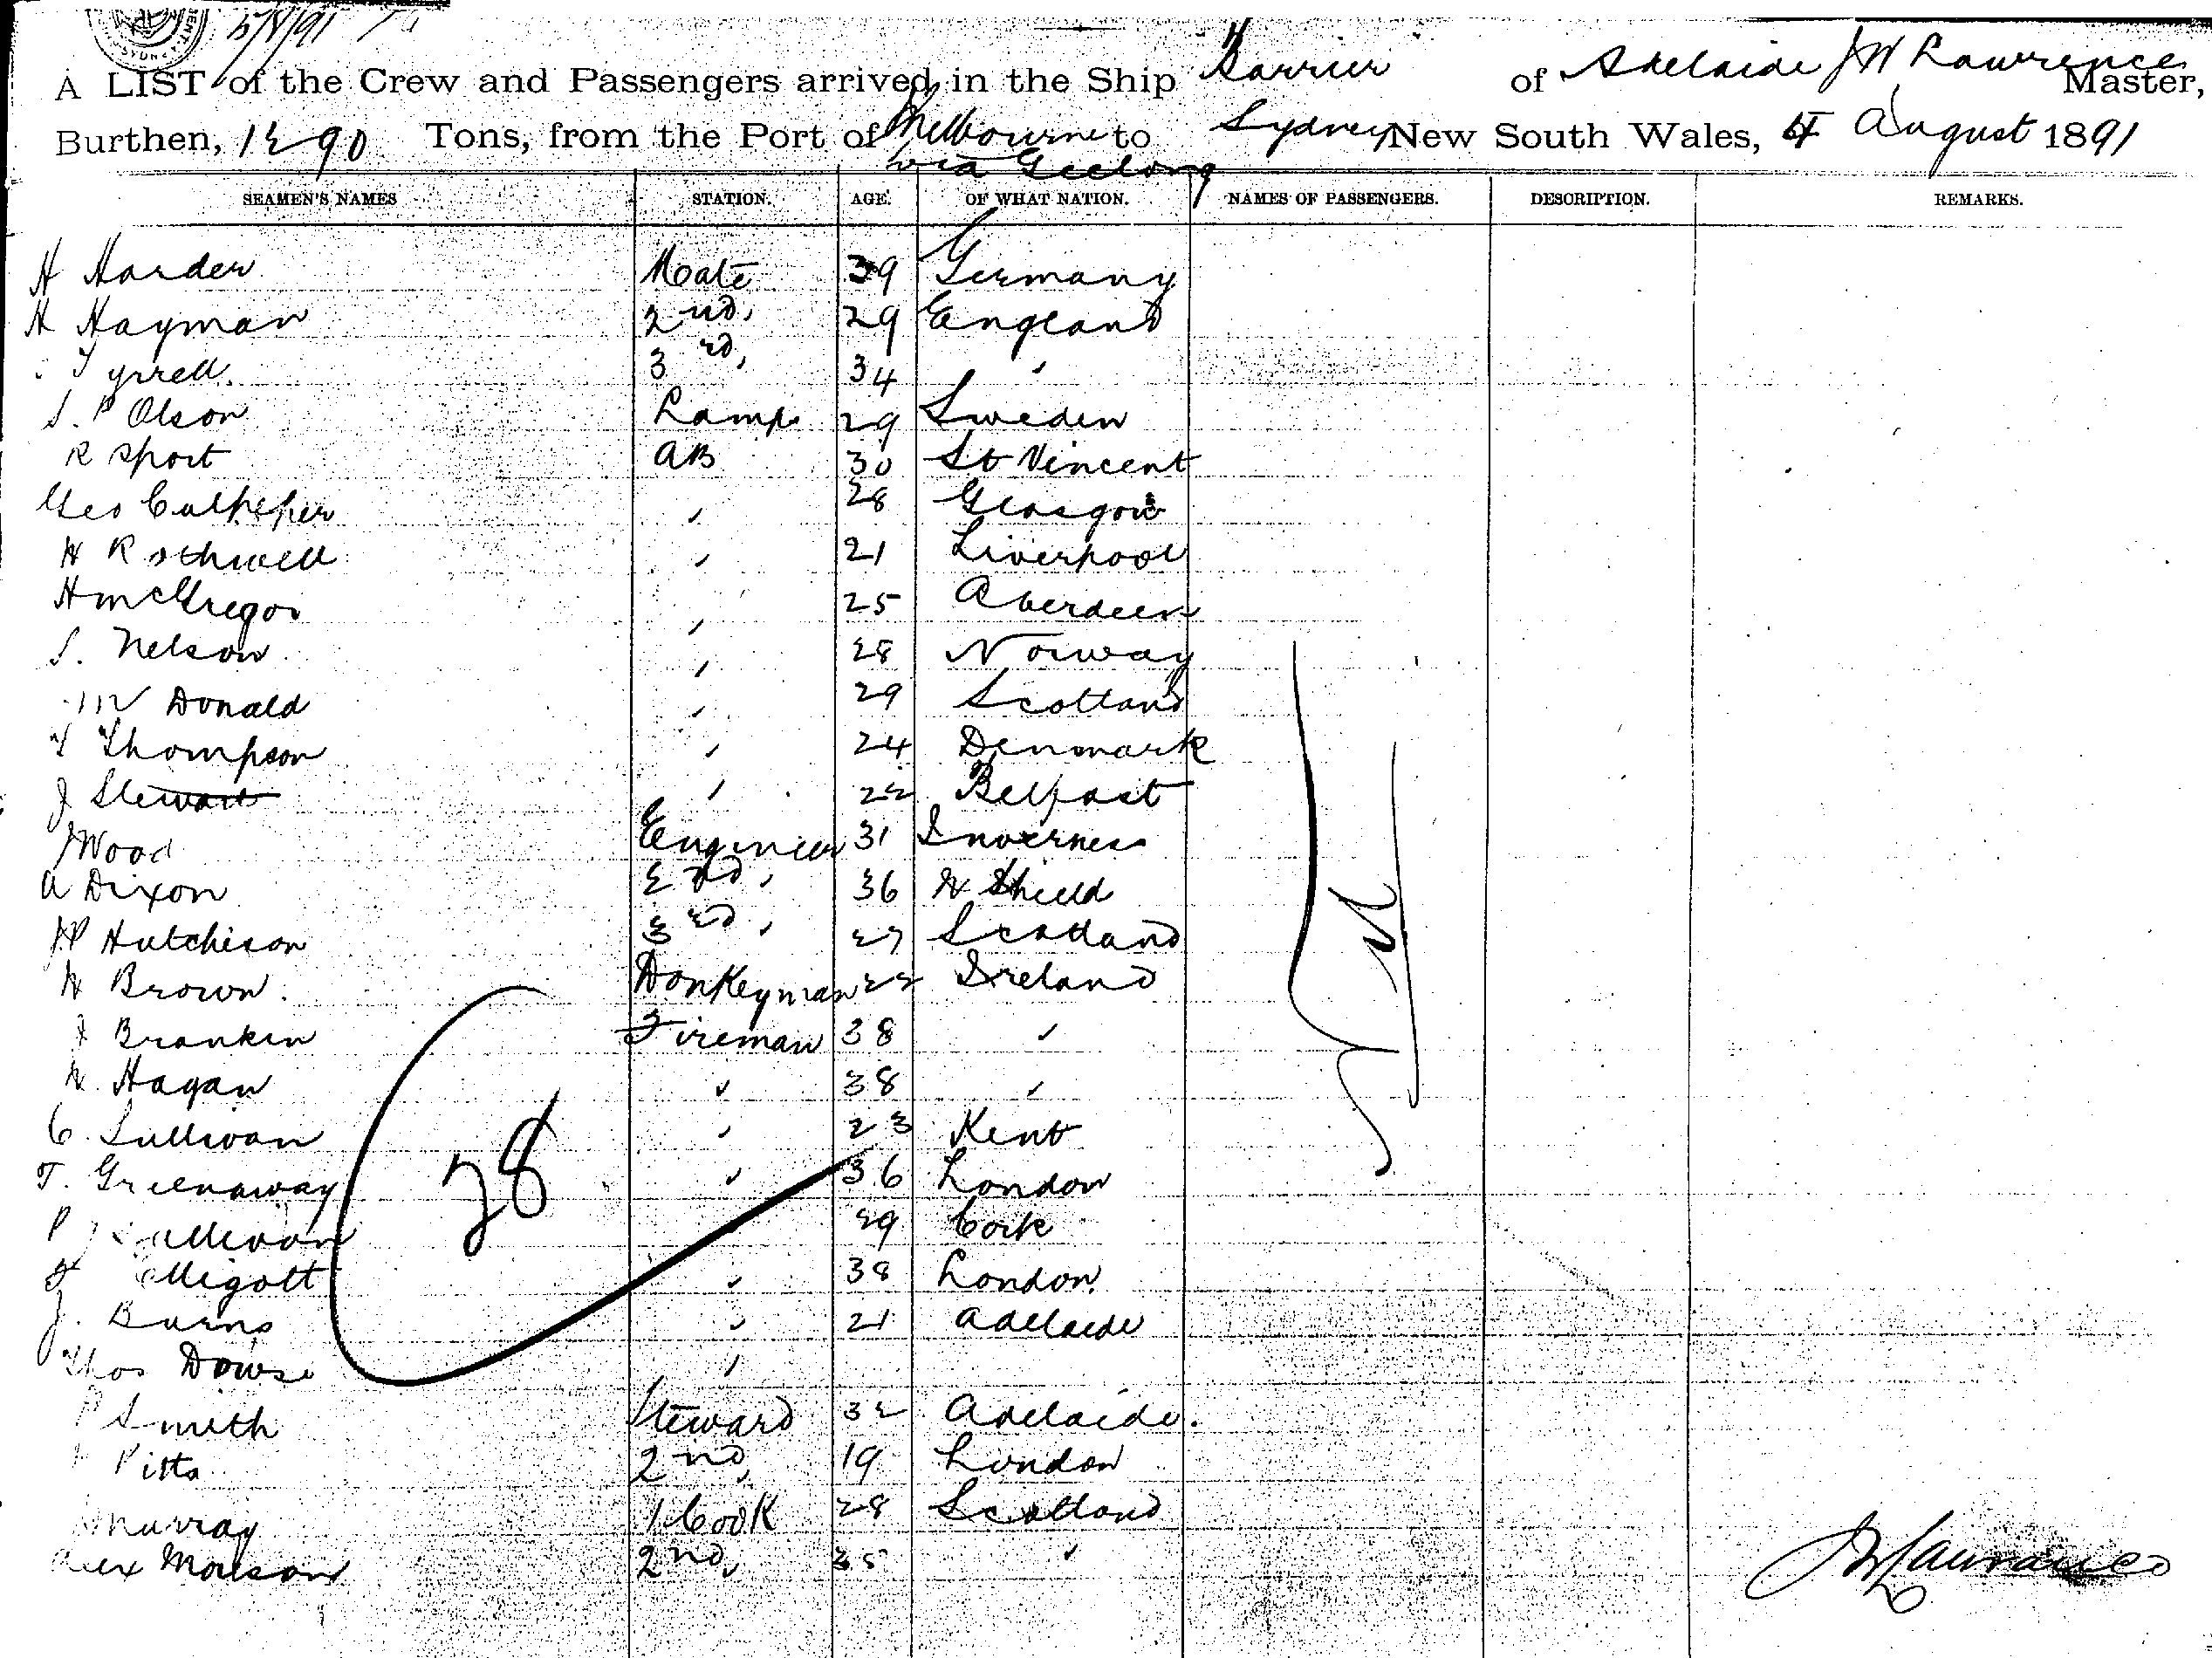 5/8/91
A LIST of the Crew and Passengers arrived in the Ship Barrier of Adelaide J W Lawrence Master,
Burthen, 1290 Tons, from the Port of Melbourne to Sydney New South Wales, 4 August 1891
via Geelong
SEAMEN'S NAMES STATION. AGE. OF WHAT NATION. NAMES OF PASSENGERS. DESCRIPTION. REMARKS.
H Harder Mate 39 Germany
H Hayman 2nd, 29 England
Tyrrell 3rd, 34 "
S. P Olson Lamps 29 Sweden
R Sport AB 30 St Vincent
Geo Culpeper " 28 Glasgow
H Rothwell " 21 Liverpool
H McGregor " 25 Aberdeen
S. Nelson " 28 Norway
W Donald " 29 Scotland
T Thompson " 24 Denmark
J Stewart " 22 Belfast
J Wood Engineer 31 Inverness
A Dixon 2nd, 36 N Shield
JP Hutchison 3rd, 27 Scotland
H Brown. Donkeyman 22 Ireland
J Brankin Fireman 38 "
H. Hagan " 38 "
C. Sullivan " 23 Kent
T. Greenaway " 36 London
P Sullivan 29 Cork
Elligott " 38 London
J. Burns " 21 Adelaide
Thos Dowse "
P Smith Steward 32 Adelaide.
Pitts 2nd, 19 London
Murray 1 Cook 28 Scotland
Alex Morison 2nd, 35 "
28
JW Lawrence